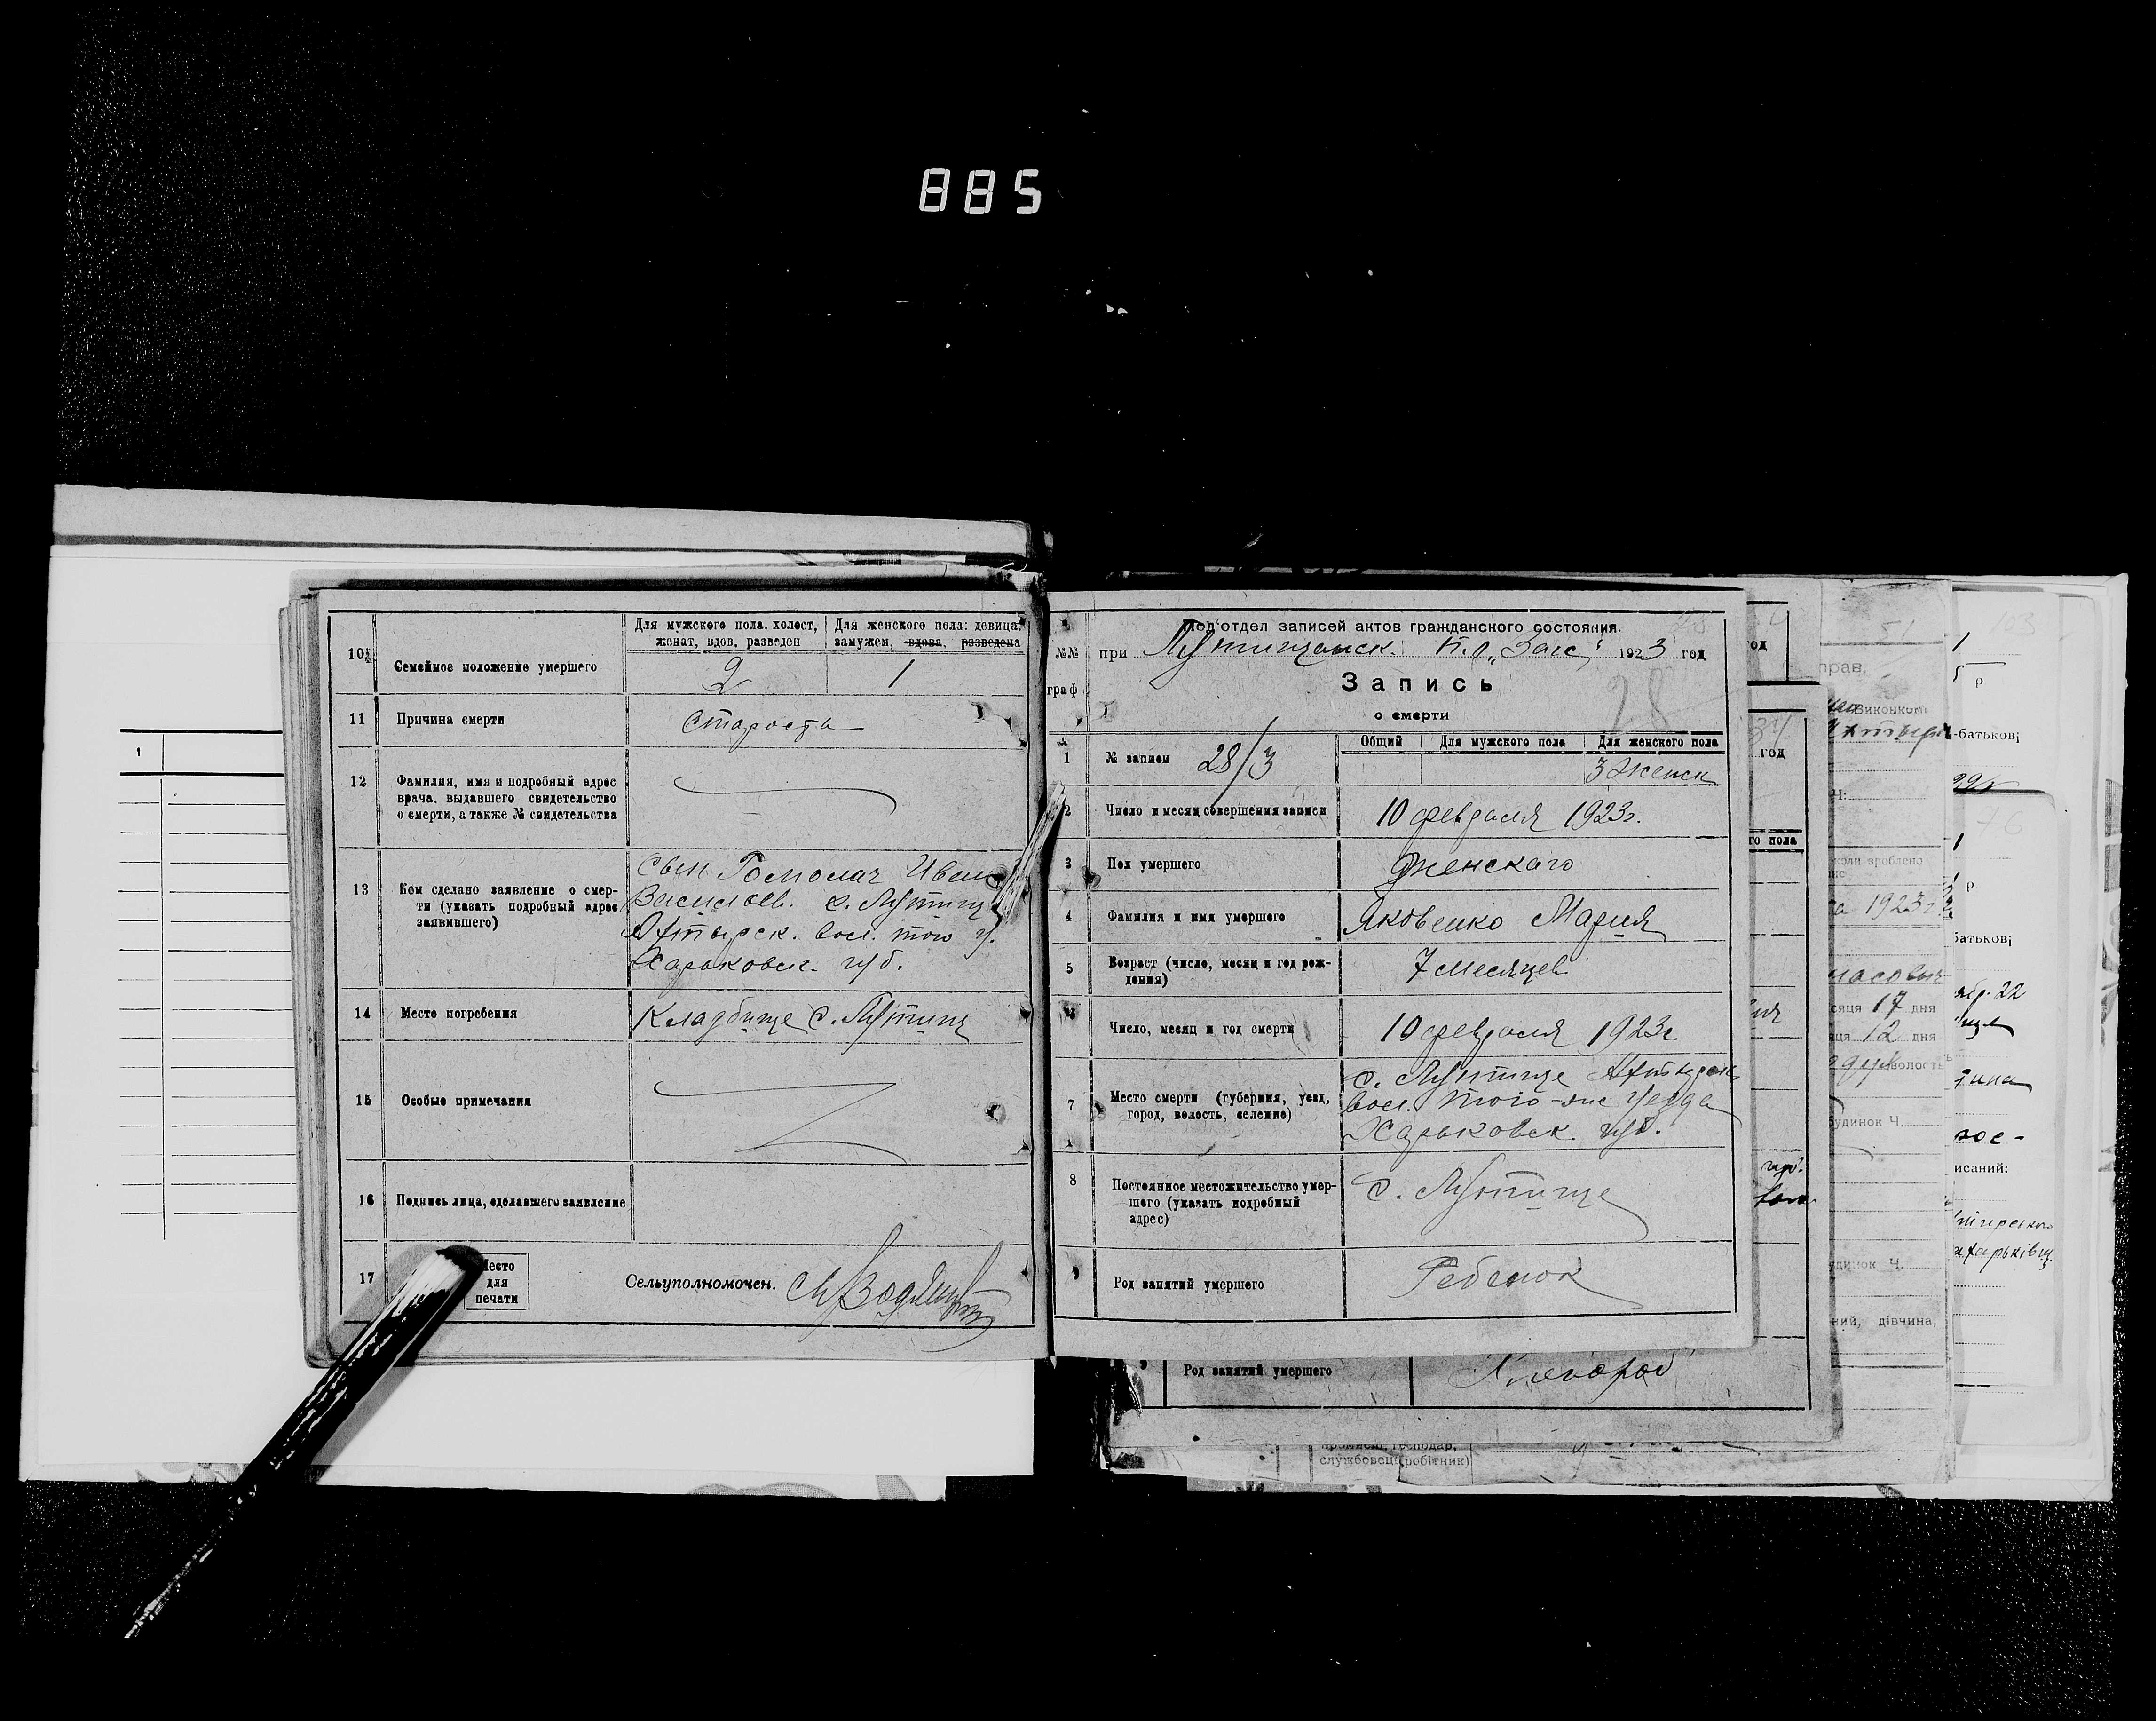 885
10½
Семейное положение умершего
Для мужского пола. холост,
женат, вдов, разведен
Для женского пола: девица,
замужем, вдова, разведена
2
1
11
Причина смерти
старость
12
Фамилия, имя и подробный адрес
врача, выдавшего свидетельство
о смерти, а также № свидетельства
13
Кем сделано заявление о смер-
ти (указать подробный адрес
заявившего)
Сын Иван
Василиев. с. Лутищ
Ахтырск. вол. того у.
Харьковск. губ.
14
Место погребения
Кладбище с. Лутищ
15
Особые примечания
16
Подпись лица, сделавшего заявление
17
Место
для
печати
Сельуполномочен.
№№
граф
Под'отдел записей актов гражданского состояния.
при Лутищанск. П.О. „Загс" 1923 год
Запись
28
о смерти
1
№ записи 28/3
Общий
Для мужского пола
Для женского пола
3 женск
2
Число и месяц совершения записи
10 февраля 1923г.
3
Пол умершего
Женскаго
4
Фамилия и имя умершего
Яковенко Мария
5
Возраст (число, месяц и год рож-
дения)
7 месяцев
6
Число, месяц и год смерти
10 февраля 1923г.
7
Место смерти (губерния, уезд,
город, волость, селение)
с. Лутище Ахтырск.
вол. того-же уезда
Харьковск. губ.
8
Постоянное местожительство умер-
шего (указать подробный
адрес)
с. Лутище
9
Род занятий умершего
Ребенок
Род занятий умершего
Хлебороб
службовец, робітник)
год
34
год
го пола
губ.
вол.
прав.
51
Виконком
коли зроблено
1923 г.
17 дня
12 дня
волость
будинок Ч.
будинок Ч.
дівчина,
1
р
-батькові
76
1
р
батькові
22
писаний:
1